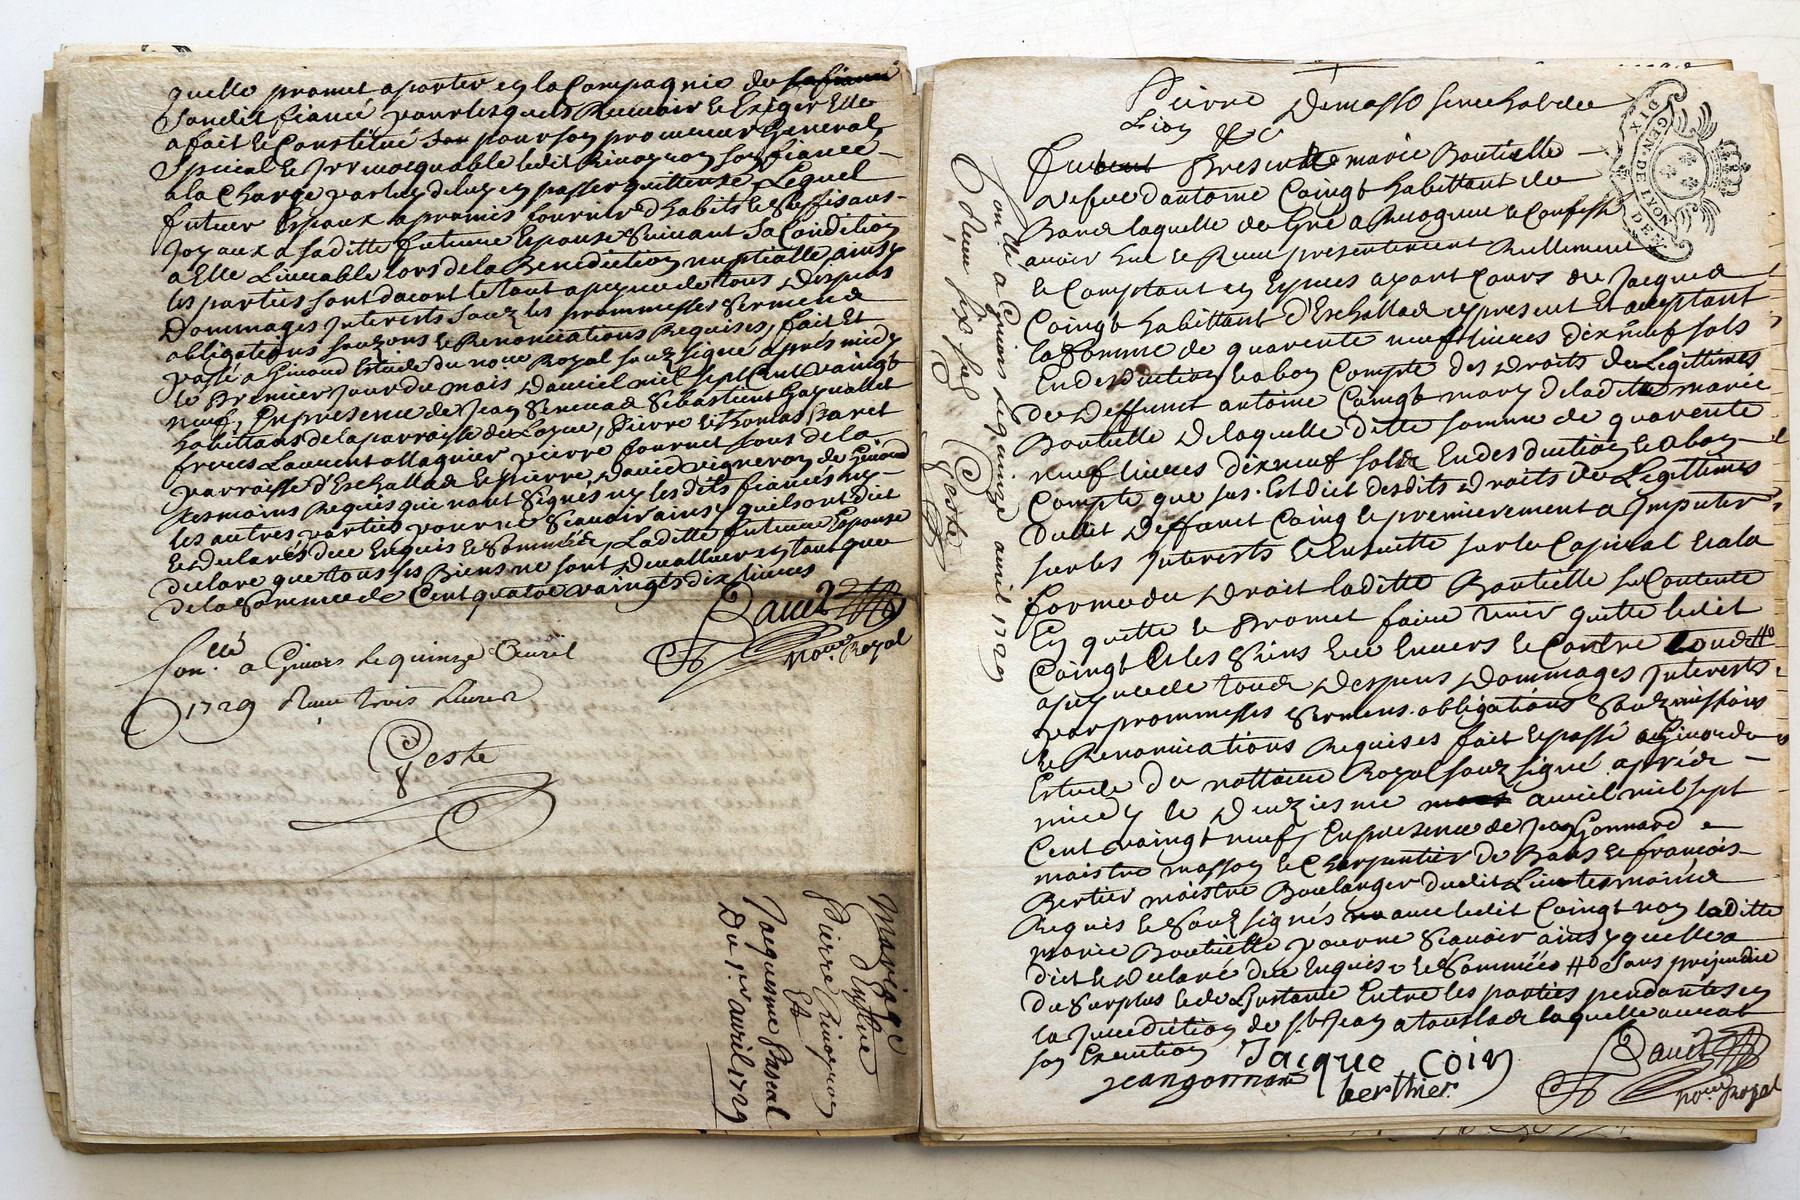 quelle promet aporter en la Compagnie de
sondit fiancé pour lesquels Recevoir & Exiger Elle
a fait & Constitué pour son procureur General
Special & Irrevocquable ledit son fiancé
a la Charge par luy de luy en passer quittance Lequel
futeur Espoux a promis fournir d'habits &
Joyaux a saditte future Epouse Suivant Sa Condition
a Elle Livrable lors de la Benediction nuptialle, ainsy
les parties sont dacort le tout a peyne de tous Despens
Dommages Interests souz les prommesses Serment &
obligations souzons & Renonciations Requises, fait Et
passé a Givord Estude du no.re Royal souzsigné apres midy
le Premier Jour du mois Davril mil sept Cent vaingt
neuf, En presence de Jean & Sebastient
habittans de la parroisse de, Pierre & Thomas
freres Laurent Magnier pierre fournel tous de la
parroisse d'Eschallad & pierre David vigneron de Givord
tesmoins Requis qui n'ont signés ny les dits fiancés ny
les autres parties pour ne Scavoir ainsy quils ont dit
& declarés deu Enquis & Sommés, Laditte future Espouse
declare que tous ses Biens ne sont De valleur en tout que
de la Somme de Cent quatre vaingts dix livres
David
no.re Royal
Con.llé a Givors le quinze Avril
1729 Reçu trois livres
Geste
Mariage
D'entre
Pierre
Et
Jacquesme Pascal
Du 1.er avril 1729
Pierre Demasso senechal de
Lion &c
DIX. GEN. DE LYON DEN.
Presente marie Boutielle
vefve d'antoine Coingt habittant de
Bans laquelle de Gré a Recogneu & Confessé
avoir heu & Receu presentement Reellement
& Comptant en Especes ayant Cours de Jacques
Coingt habittant d'Eschallad cy present Et aceptant
la Somme de quarente neuf livres dix neuf sols
En desduction & a bon Compte des Droits de Legittimes
de Deffunct antoine Coingt mary de laditte marie
Boutielle De laquelle ditte somme de quarente
neuf livres dix neuf sols En desduction & a bon
Compte que sus Est Dict desdits Droits de Legittimes
Dudit Deffunct Coing & premierement a Imputer
sur les Interests & Ensuitte sur le Capital & a la
forme du Droit laditte Boutielle se Contente
En quitte & Promet faire tenir quitte ledit
Coingt & les siens Envers & Contre tous
a peyne de tous Despens Dommages Interests
par prommesses Sermens obligations Souzmissions
& Renonciations Requises fait & passé a Givord
Estude du nottaire Royal souzsigné apres
midy le Deuziesme avril mil sept
Cent vaingt neuf, En presence de Jean Gonnard
maistre masson & Charpentier de Bans & francois
Bertier maistre Boulanger dudit Lieu tesmoins
Requis & Souzsignés avec ledit Coingt non laditte
marie Boutielle pour ne Scavoir ainsy quelle a
dict & declaré deu Enquise & Sommées Sans prejudice
Du Surplus & de L'Instance Entre les parties pendante en
la Jurediction de St Jean a laquelle aurat
son Execution
Jacque Coin
Jean gonnard
berthier
David
no.re Royal
Con.llé a Givors le quinze avril 1729
Reçu six sols
Geste